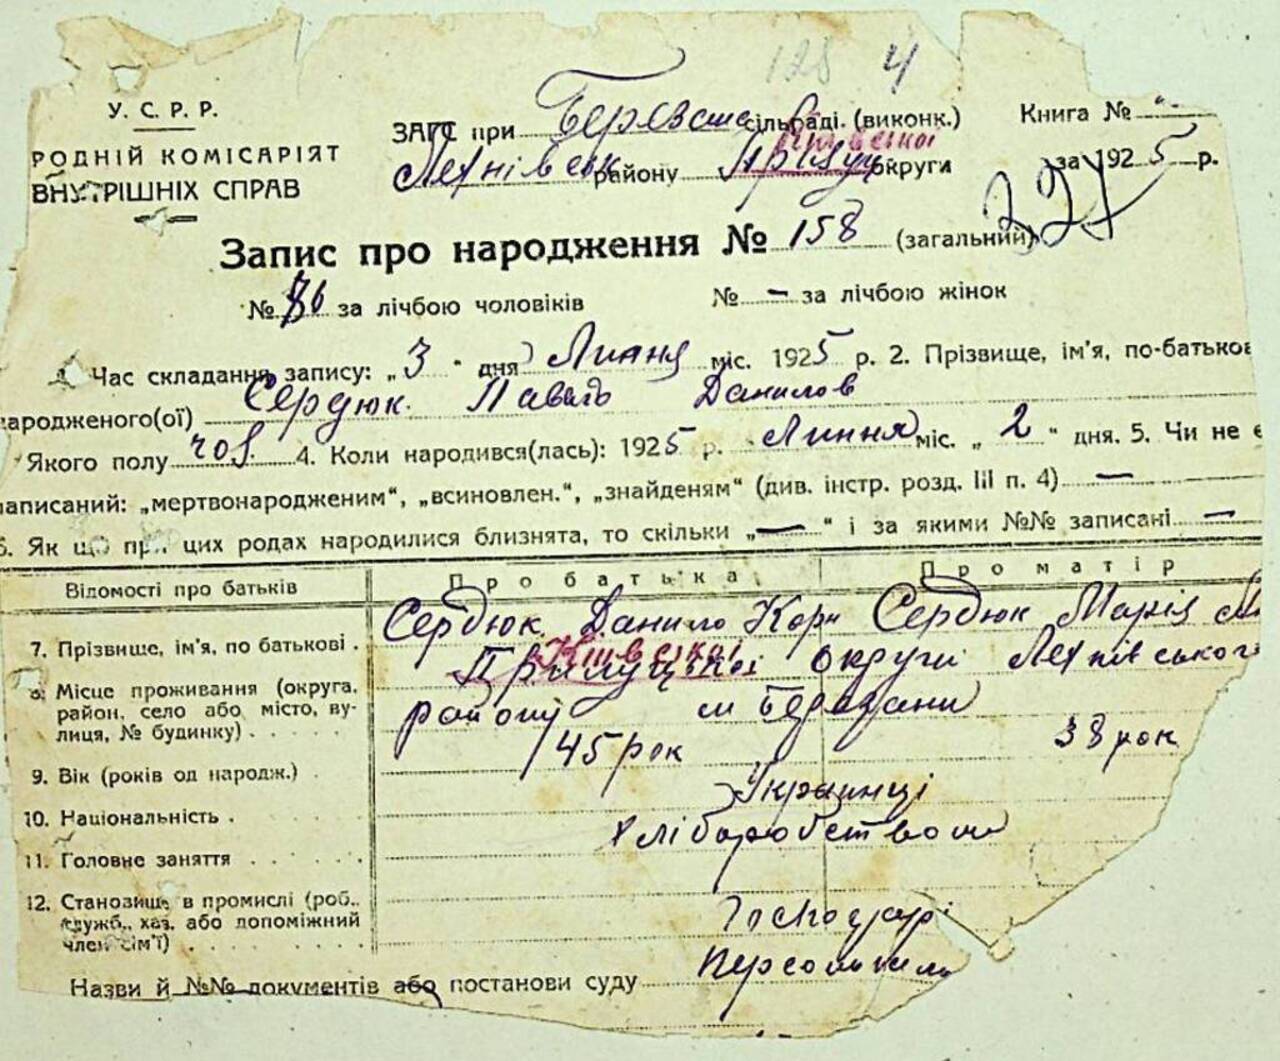 128 4
У. С. Р. Р.
РОДНІЙ КОМІСАРІЯТ
ВНУТРІШНІХ СПРАВ
ЗАГС при Березан сільраді. (виконк.) Книга №
Київської
Яехнівськ району Прилуц округи за 1925 р.
221
Запис про народження № 158 (загальний)
№ 86 за лічбою чоловіків № — за лічбою жінок
Час складання запису: „3 " дня Липня міс. 1925 р. 2. Прізвище, ім'я, по-батькові
народженого(ої) Сердюк Павло Данилов
Якого полу чол. 4. Коли народився(лась): 1925 р. Липня міс. „ 2 " дня. 5. Чи не є
записаний: „мертвонародженим", „всиновлен.", „знайденям" (див. інстр. розд. III п. 4) —
6. Як що при цих родах народилися близнята, то скільки „—" і за якими №№ записані —
Відомості про батьків Про батька Про матір
7. Прізвище, ім'я, по батькові . Сердюк Данило Корн Сердюк Марія
Київської
8. Місце проживання (округа, район, село або місто, вулиця, № будинку) . . . . Прилуцької округи Яехнівського
району м Березани
9. Вік (років од народж.) . 45 рок 38 рок
10. Національність . Украинці
11. Головне заняття . . . . . Хліборобством
12. Становище в промислі (роб., служб., хаз. або допоміжний член сім'ї) . . . . . Господарі
Назви й №№ документів або постанови суду